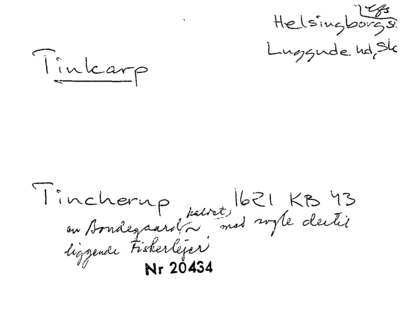 lfs
Helsingborgs
Luggude hd, Sk
Tinkarp
Tincherup 1621 KB 43
en Bondegaard, kaldet, med nogle dertil
liggende Fiskerlejer
Nr 20434